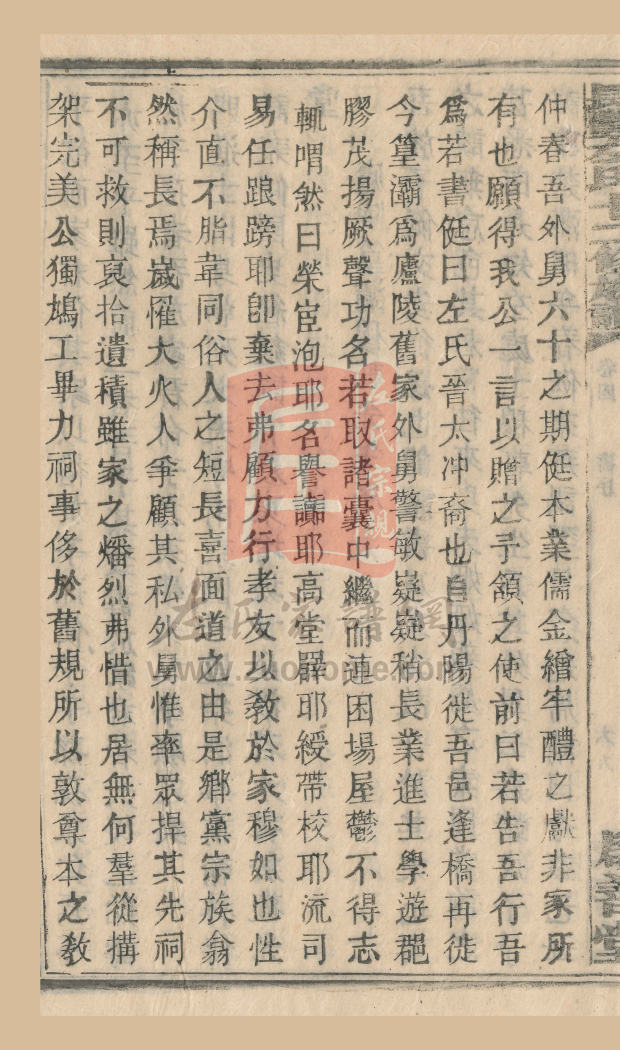 仲春吾外舅六十之期侹本業儒金繒牢醴之獻非家所
有也願得我公一言以贈之予頷之使前曰若告吾行吾
爲若書侹曰左氏晉太冲裔也自丹陽徙吾邑逢橋再徙
今篁灞爲廬陵舊家外舅警敏嶷嶷稍長業進士學遊郡
膠茂揚厥聲功名若取諸囊中繼而連困場屋鬱不得志
輒喟然曰榮宦泡耶名譽讟耶高堂羼耶綬帶校耶流司
易任踉蹡耶卽棄去弗顧力行孝友以敎於家穆如也性
介直不脂韋同俗人之短長喜面道之由是鄉黨宗族翕
然稱長焉嵗罹大火人爭顧其私外舅惟率眾捍其先祠
不可救則裒拾遺積雖家之燔烈弗惜也居無何羣從搆
架完美公獨鳩工畢力祠事侈於舊規所以敦尊本之敎
卷四
左氏宗親
www.zuozongpu.com